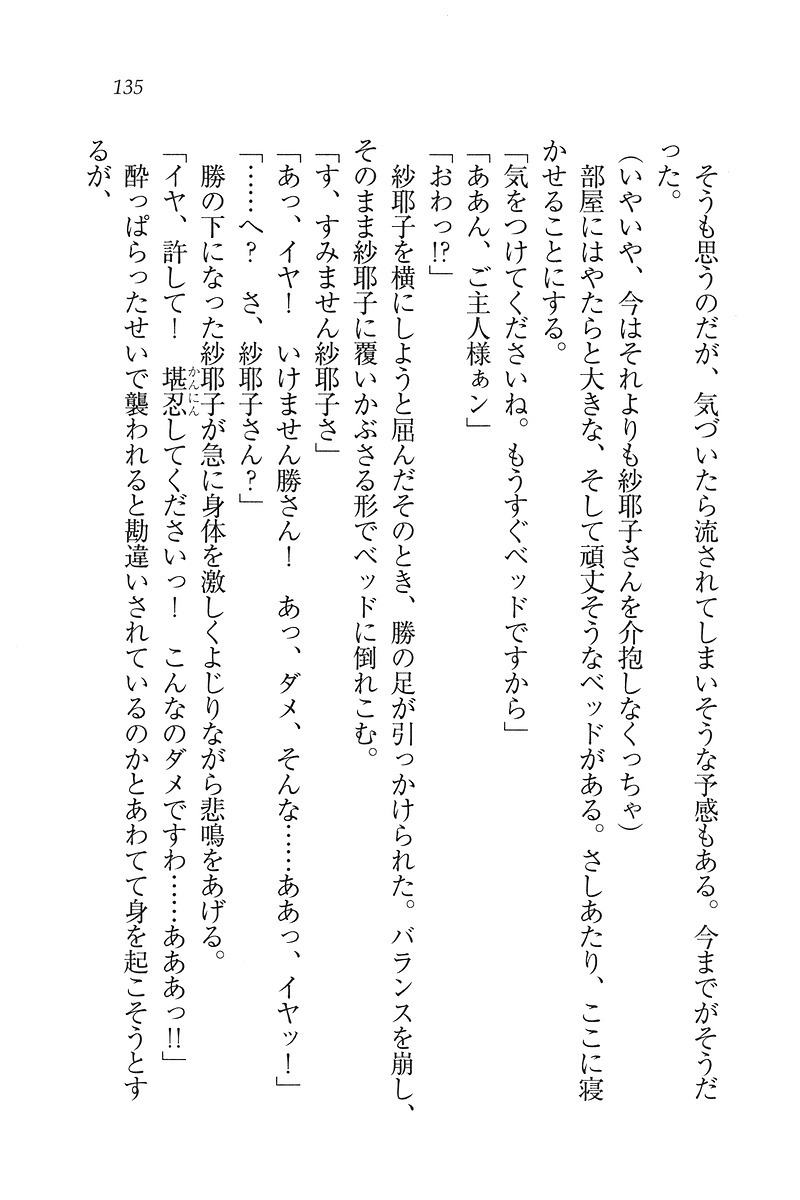 135
そうも思うのだが、気づいたら流されてしまいそうな予感もある。今までがそうだ
った。
(いやいや、今はそれよりも紗耶子さんを介抱しなくっちゃ)
部屋にはやたらと大きな、そして頑丈そうなベッドがある。さしあたり、ここに寝
かせることにする。
「気をつけてくださいね。もうすぐベッドですから」
「ああん、ご主人様ぁン」
「おわっ!?」
紗耶子を横にしようと屈んだそのとき、勝の足が引っかけられた。バランスを崩し、
そのまま紗耶子に覆いかぶさる形でベッドに倒れこむ。
「す、すみません紗耶子さ」
「あっ、イヤ!　いけません勝さん!　あっ、ダメ、そんな……ああっ、イヤッ!」
「……へ?　さ、紗耶子さん?」
勝の下になった紗耶子が急に身体を激しくよじりながら悲鳴をあげる。
「イヤ、許して!　堪忍してくださいっ!　こんなのダメですわ……あああっ!!」
かんにん
酔っぱらったせいで襲われると勘違いされているのかとあわてて身を起こそうとす
るが、